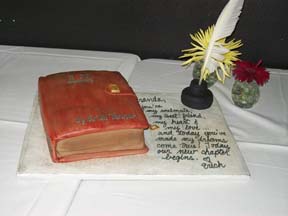 you're
my soulmate,
my best friend,
my heart &
my love...
and today you've
made my dreams
come true. Today
our new chapter
begins.
Erich